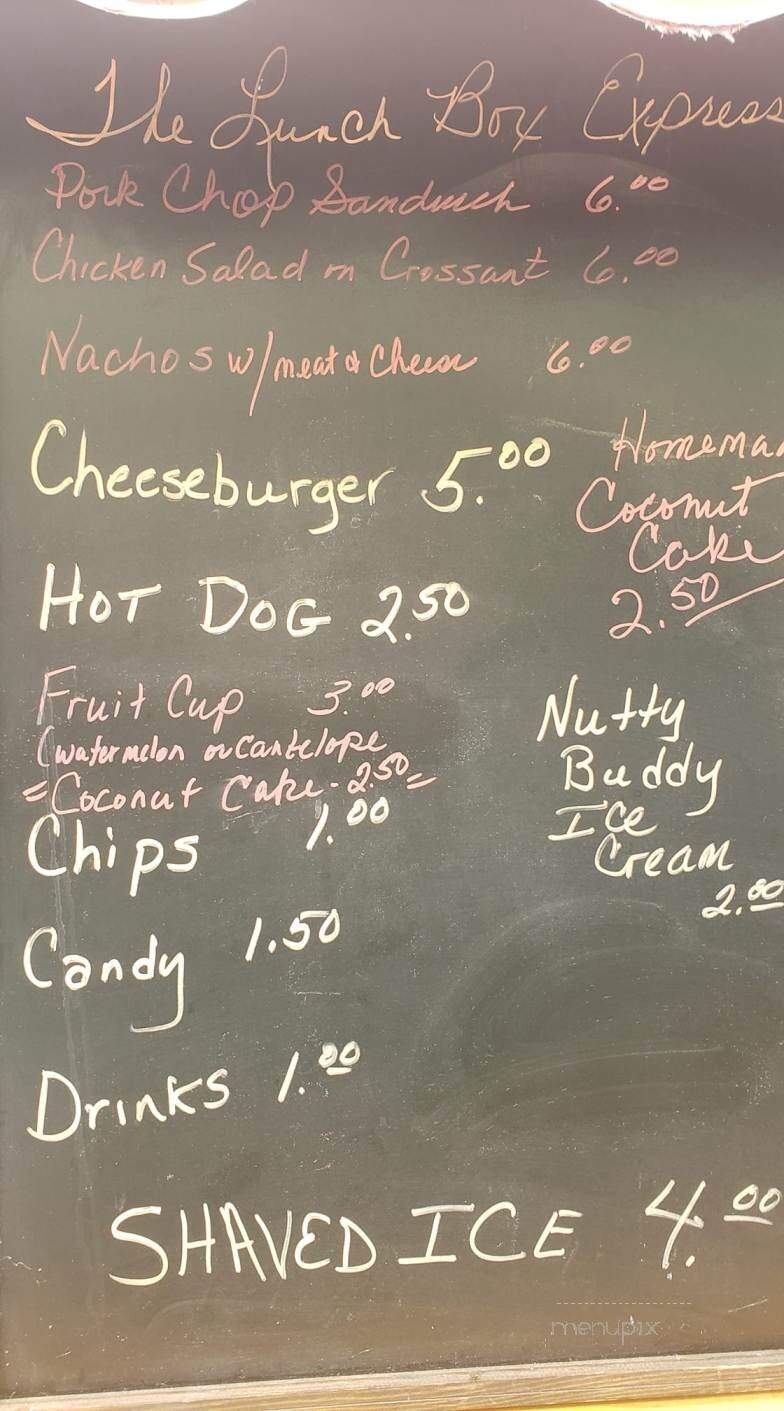 The Lunch Box Express
Pork Chop Sandwich 6.00
Chicken Salad on Crossant 6.00
Nachos w/meat & Cheese 6.00
Cheeseburger 5.00
Homema
Coconut
Cake
2.50
HOT DOG 2.50
Fruit Cup 3.00
(watermelon or Cantelope
=Coconut Cake - 2.50=
Chips 1.00
Nutty
Buddy
Ice
Cream
2.00
Candy 1.50
Drinks 1.00
SHAVED ICE 4.00
menupix